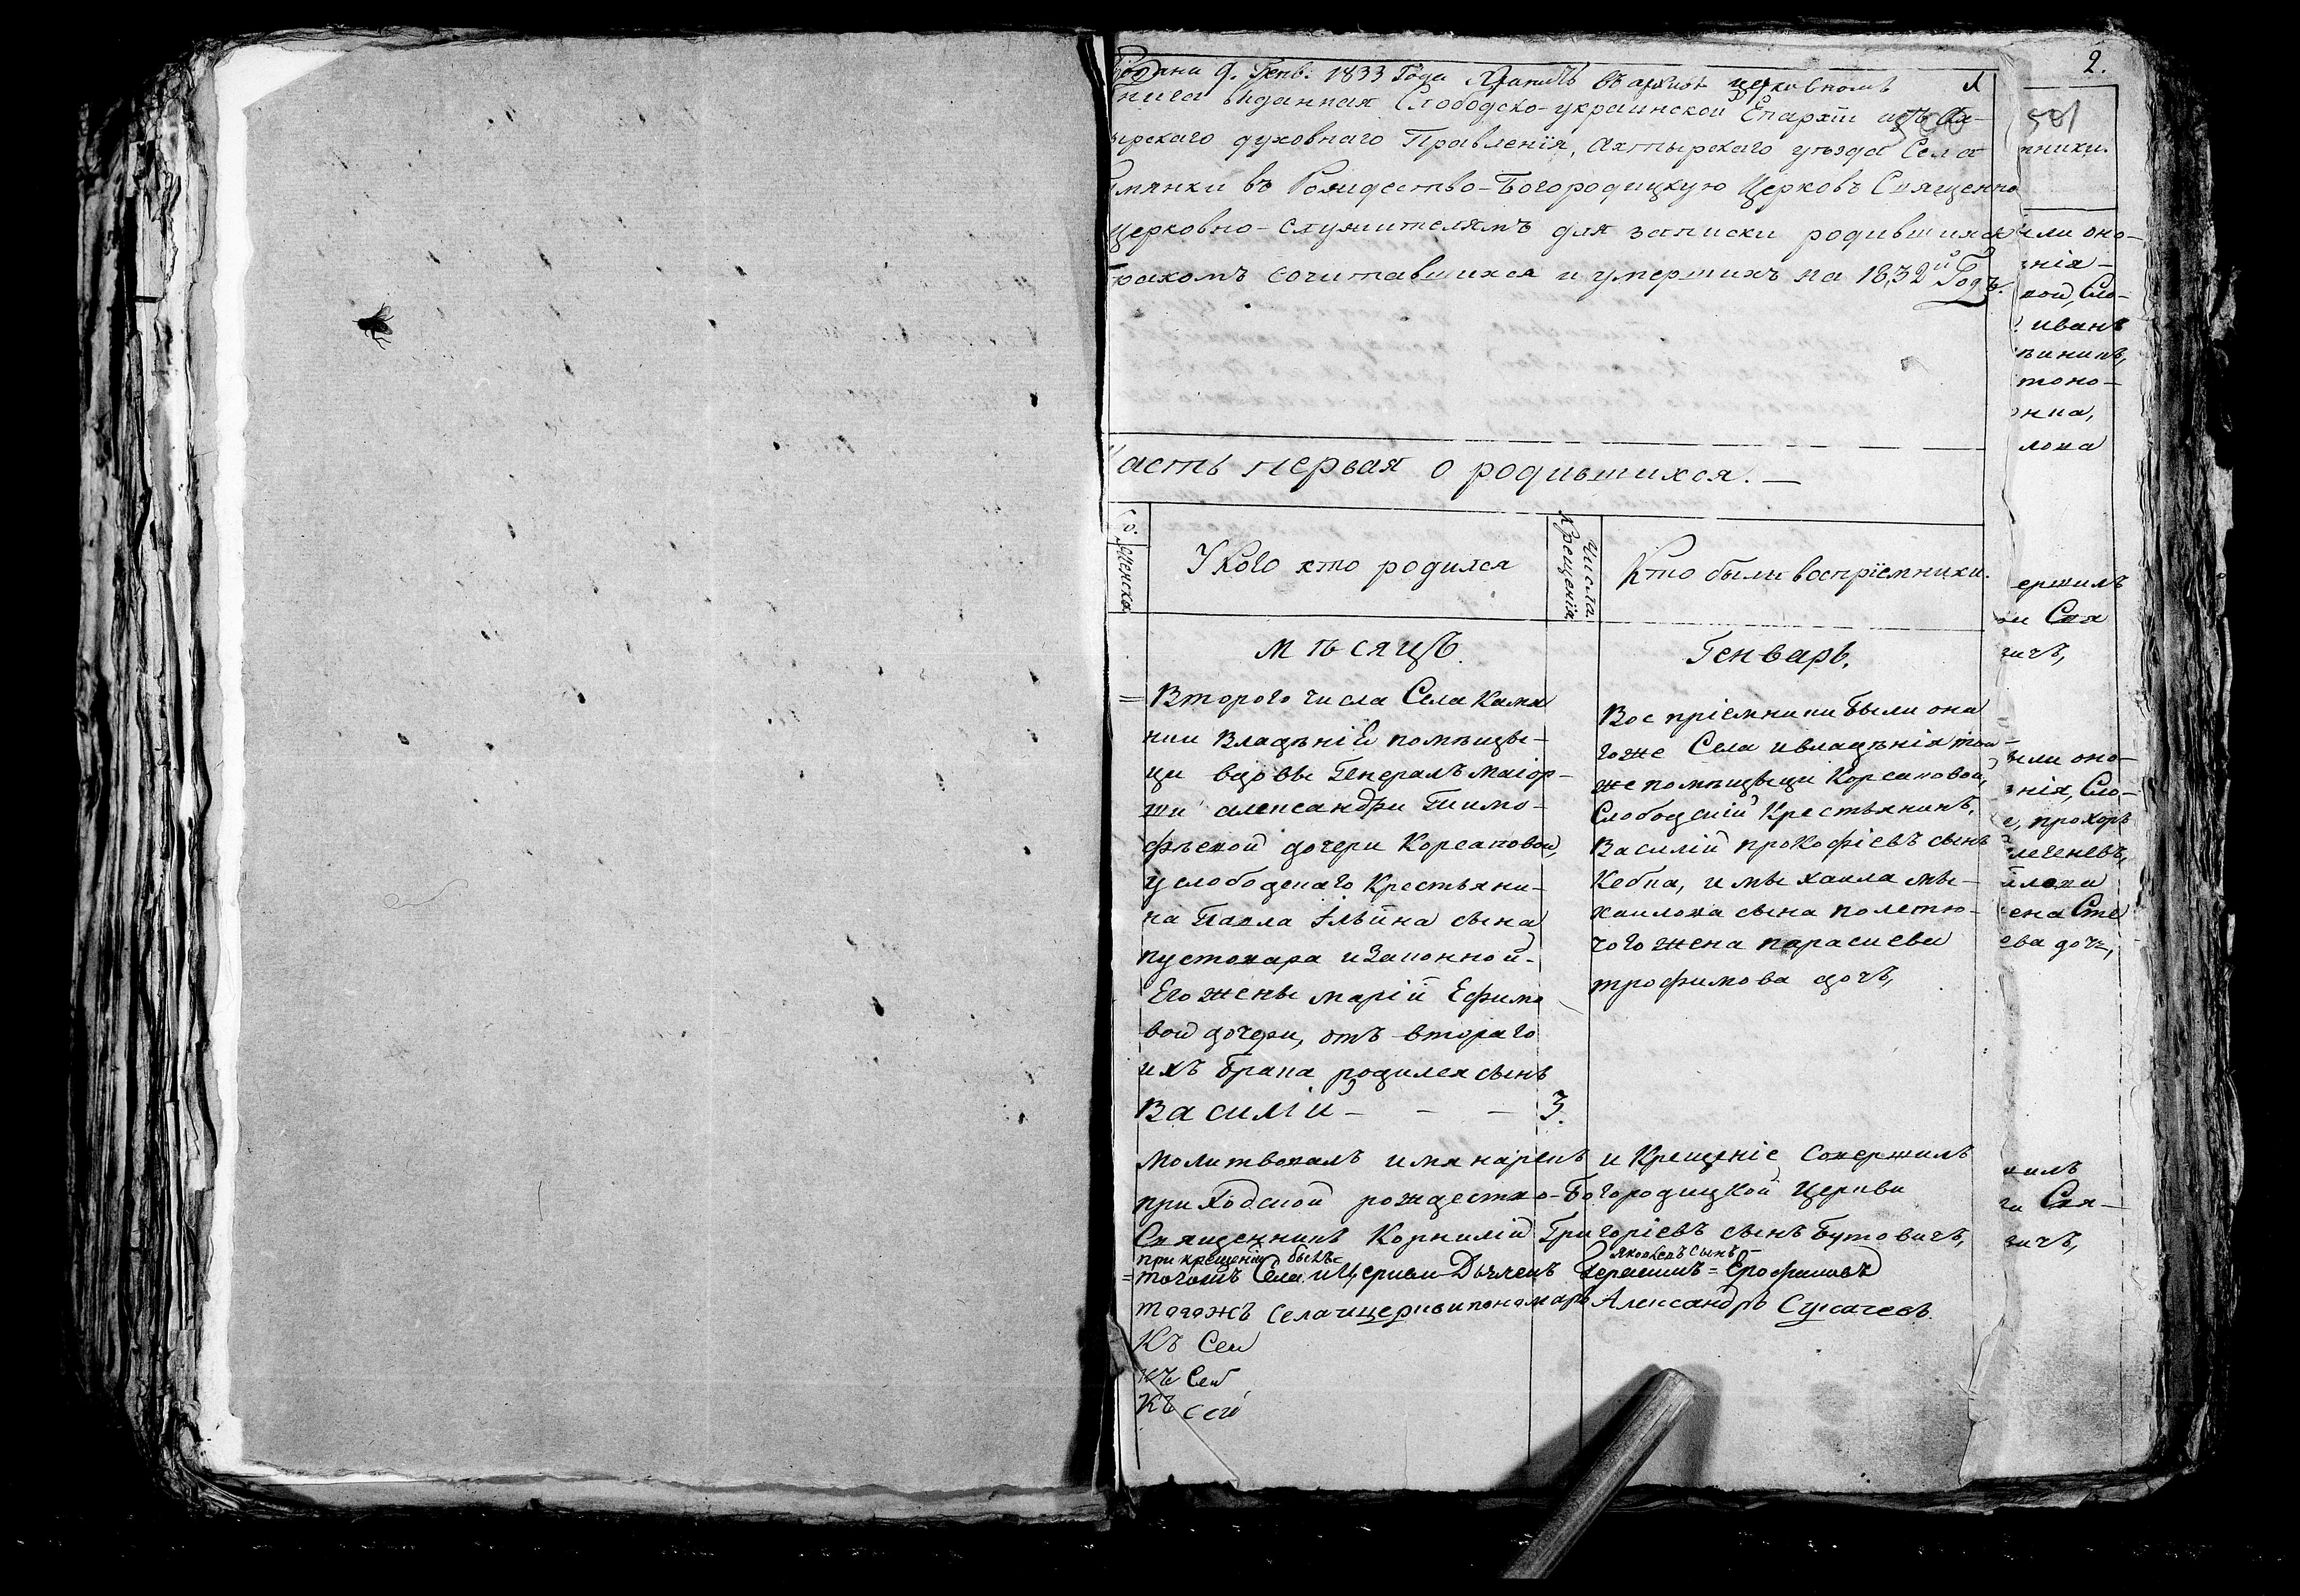 2.
9. Генв. 1833 Года Хранить въ архивѣ церковномъ
выданная Слободско-украинской Епархїи изъ Ах-
тырскаго духовнаго Правленїя, Ахтырскаго уѣзда Села
мянки въ Рождество-Богородицкую Церковь Священно
церковно-служителямъ для записки родившихся
бракомъ сочитавшихся и умершихъ на 1832й Годъ.
асть первая о родившихся.
Женска
У Кого кто родился
Числа Крещенїя
Кто были воспрїемники.
мѣсяцъ
Генварь.
= Второго числа Села Камя
нки Владѣнїя помѣщи-
ци вдовы Генералъ маіор-
ши александри Тимо-
фѣевой дочери Корсаковой,
у слободскаго Крестьяни-
на Павла Ільина сына
пустовара и Законной
Его жены маріи Ефимо
вой дочери, отъ втораго
ихъ брака родился сынъ
Василій - - - 3.
Воспріемники были она
гоже Села и владѣнія той-
же помѣщыци Корсаковой,
Слободскій Крестьянинъ,
Василій прокофіевъ сынъ
Кебка, и мы хаила мы-
хаилова сына полетю-
чого жена параскева
трофимова дочь,
Молитвовалъ имя нарекъ и Крещеніе Совершилъ
приходской рождество-Богородицкой Церкви
Священникъ Корнилій Григоріевъ сынъ Бутовичъ,
при крещеніи былъ
Яковлевъ сынъ
= тогожъ Села и Церкви Дьячекъ Герасимъ = Ерофаловъ
тогожъ села и церкви пономарь Александръ Сукачевъ.
Къ Сей
Къ Сей
Къ сей
501
нники.
ыли оно-
нія-
кой, Сло-
иванъ
тоно-
лова
ершилъ
ви Свя
вичъ,
ыли оно-
нія, Сло-
е, прохоръ
ена Сте
ева дочь,
шилъ
ви Свя-
вичъ,